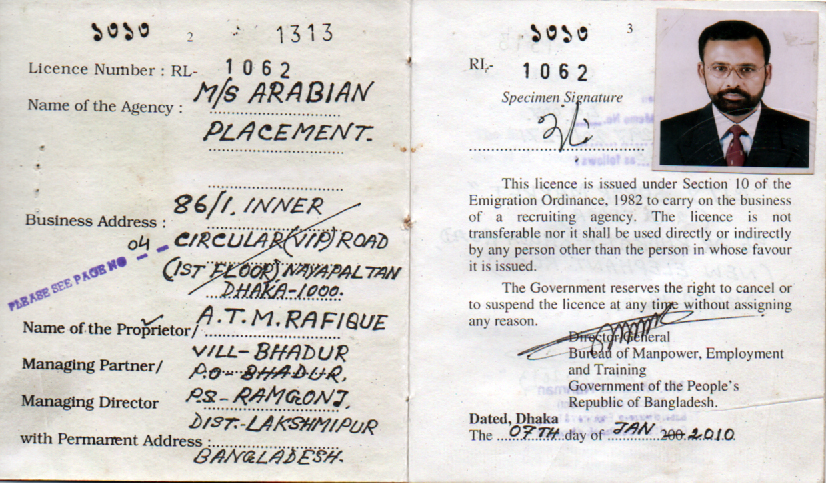 ১০১০ 2 1313
Licence Number : RL- 1062
Name of the Agency : M/S ARABIAN
PLACEMENT.
Business Address : 86/1, INNER
04 CIRCULAR (VIP) ROAD
(1ST FLOOR) NAYAPALTAN
PLEASE SEE PAGE NO
DHAKA-1000.
Name of the Proprietor/ A.T.M. RAFIQUE
Managing Partner/ VILL- BHADUR
P.O- BHADUR,
Managing Director P.S- RAMGONJ,
DIST.- LAKSHMIPUR
with Permanent Address :
BANGLADESH.
১০১০ 3
RL- 1062
Specimen Signature
This licence is issued under Section 10 of the
Emigration Ordinance, 1982 to carry on the business
of a recruiting agency. The licence is not
transferable nor it shall be used directly or indirectly
by any person other than the person in whose favour
it is issued.
The Government reserves the right to cancel or
to suspend the licence at any time without assigning
any reason.
Director General
Bureau of Manpower, Employment
and Training
Government of the People's
Republic of Bangladesh.
Dated, Dhaka
The 07TH day of JAN 200 2010